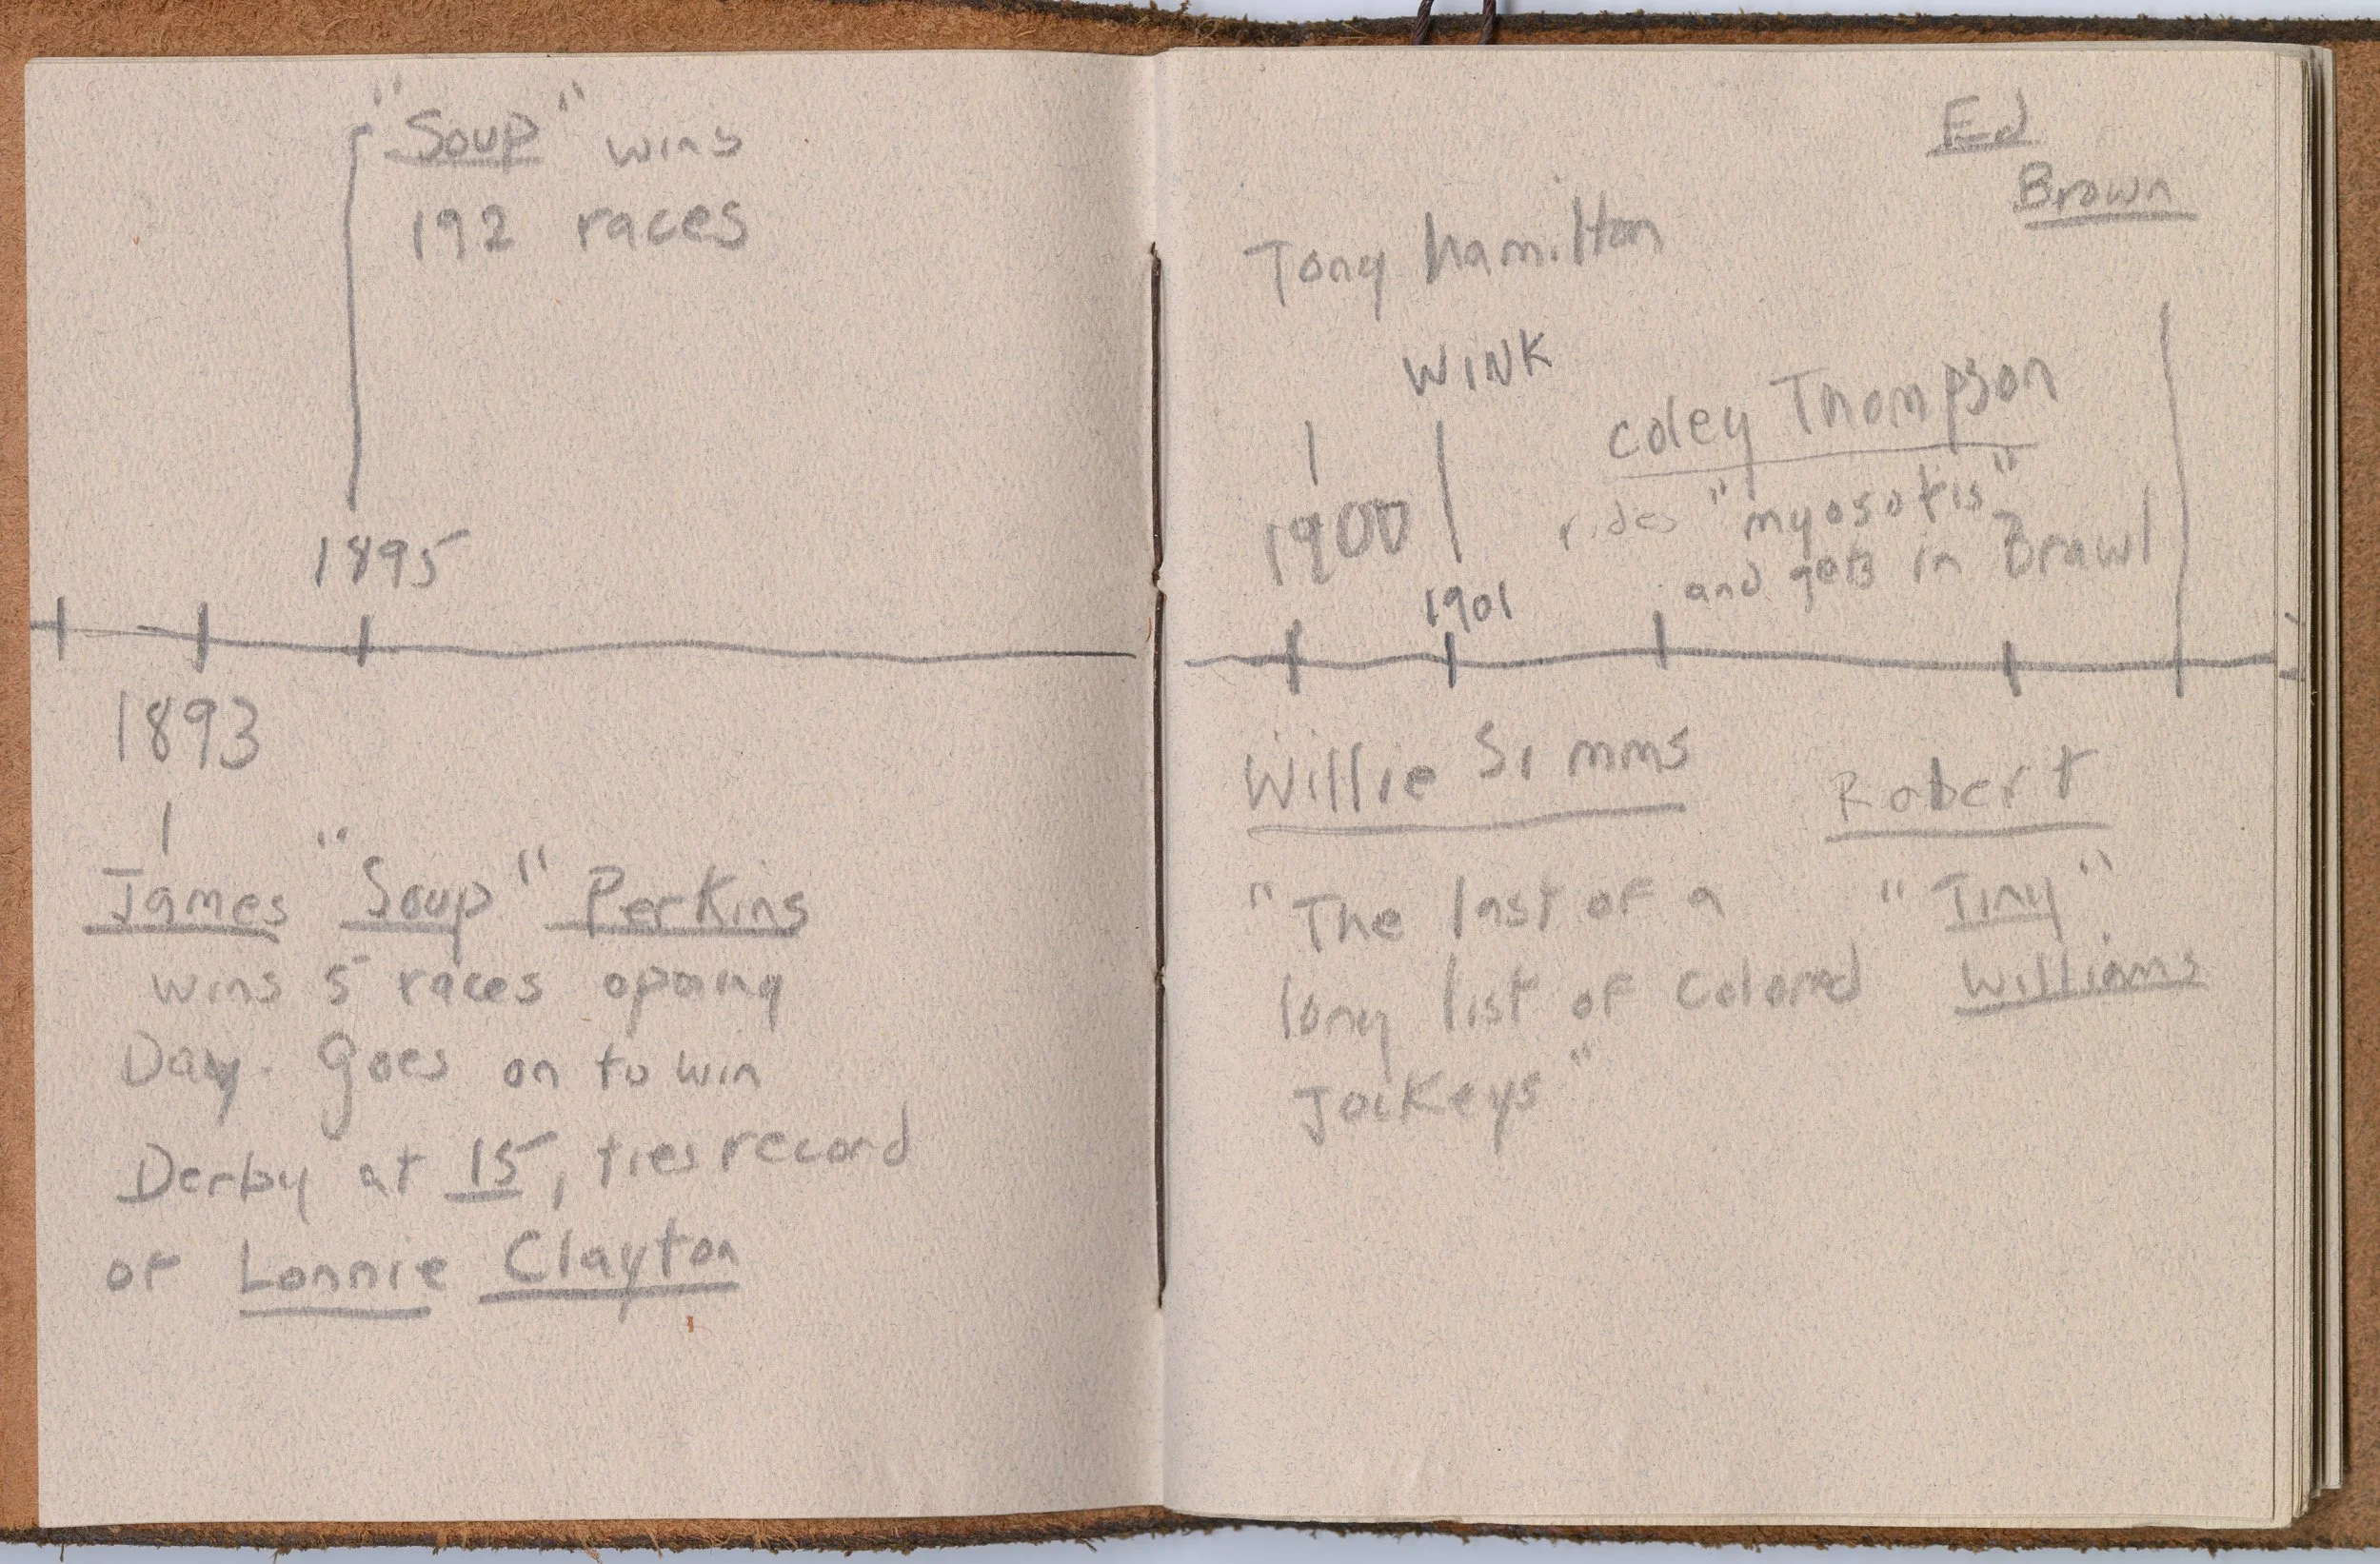 "Soup" wins
192 races
1895
1893
James "Soup" Perkins
wins 5 races opening
Day. Goes on to win
Derby at 15, ties record
of Lonnie Clayton
Ed
Brown
Tony hamilton
WINK
1900
1901
Coley Thompson
rides "myosotis"
and gets in Brawl
Willie Simms
"The last of a
long list of Colored
Jockeys"
Robert
"Tiny"
Williams